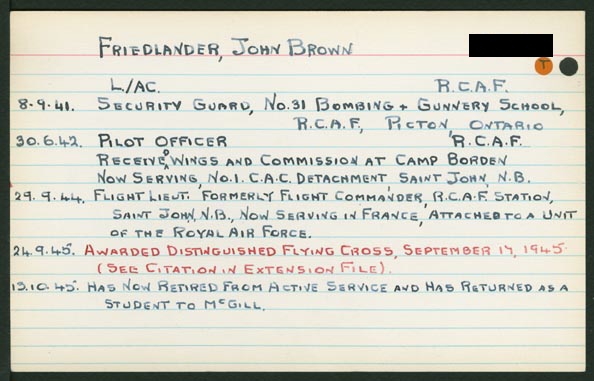 FRIEDLANDER, JOHN BROWN
T
L/AC. R.C.A.F.
8.9.41. SECURITY GUARD, NO.31 BOMBING + GUNNERY SCHOOL,
R.C.A.F., PICTON, ONTARIO
30.6.42. PILOT OFFICER R.C.A.F.
RECEIVED WINGS AND COMMISSION AT CAMP BORDEN
NOW SERVING, NO.1. C.A.C. DETACHMENT, SAINT JOHN, N.B.
29.9.44. FLIGHT LIEUT. FORMERLY FLIGHT COMMANDER, R.C.A.F. STATION,
SAINT JOHN, N.B., NOW SERVING IN FRANCE, ATTACHED TO A UNIT
OF THE ROYAL AIR FORCE.
24.9.45. AWARDED DISTINGUISHED FLYING CROSS, SEPTEMBER 17, 1945.
(SEE CITATION IN EXTENSION FILE).
13.10.45. HAS NOW RETIRED FROM ACTIVE SERVICE AND HAS RETURNED AS A
STUDENT TO McGILL.